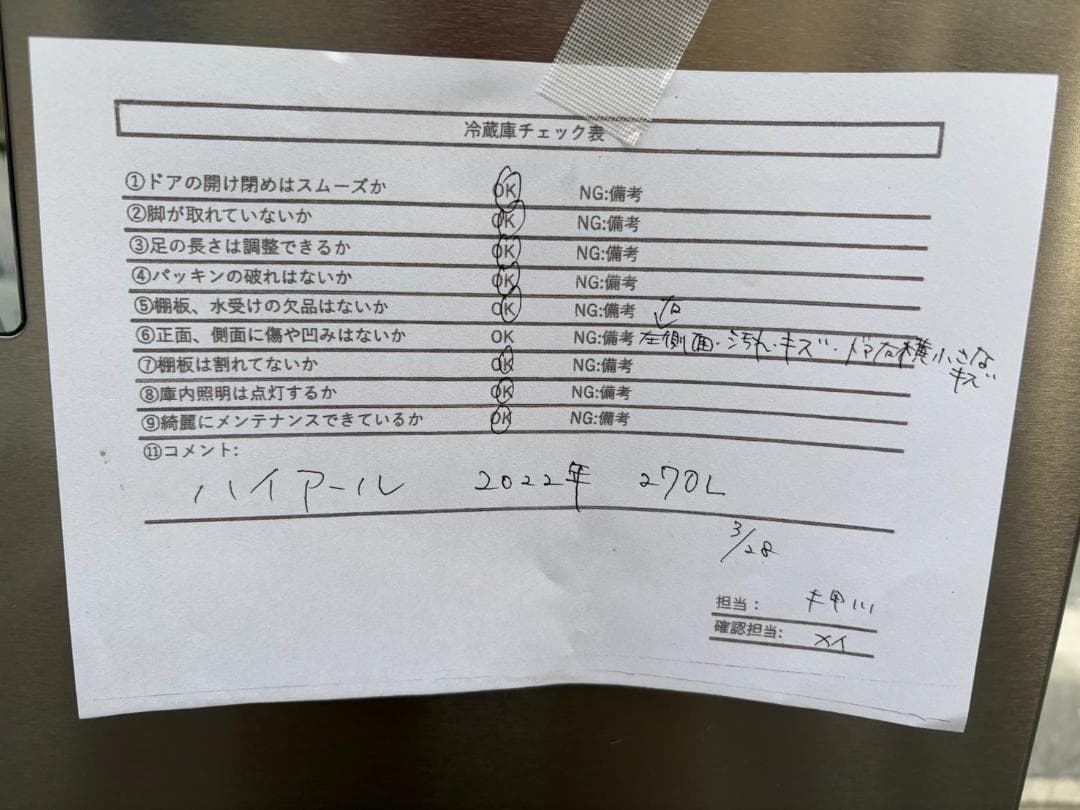 冷蔵庫チェック表
①ドアの開け閉めはスムーズか OK NG:備考
②脚が取れていないか OK NG:備考
③足の長さは調整できるか OK NG:備考
④パッキンの破れはないか OK NG:備考
⑤棚板、水受けの欠品はないか OK NG:備考
右
⑥正面、側面に傷や凹みはないか OK NG:備考 左側面・汚れ・キズ・ドア右横小さな
キズ
⑦棚板は割れてないか OK NG:備考
⑧庫内照明は点灯するか OK NG:備考
⑨綺麗にメンテナンスできているか OK NG:備考
⑪コメント:
ハイアール 2022年 270L
3/28
担当:
確認担当: メイ